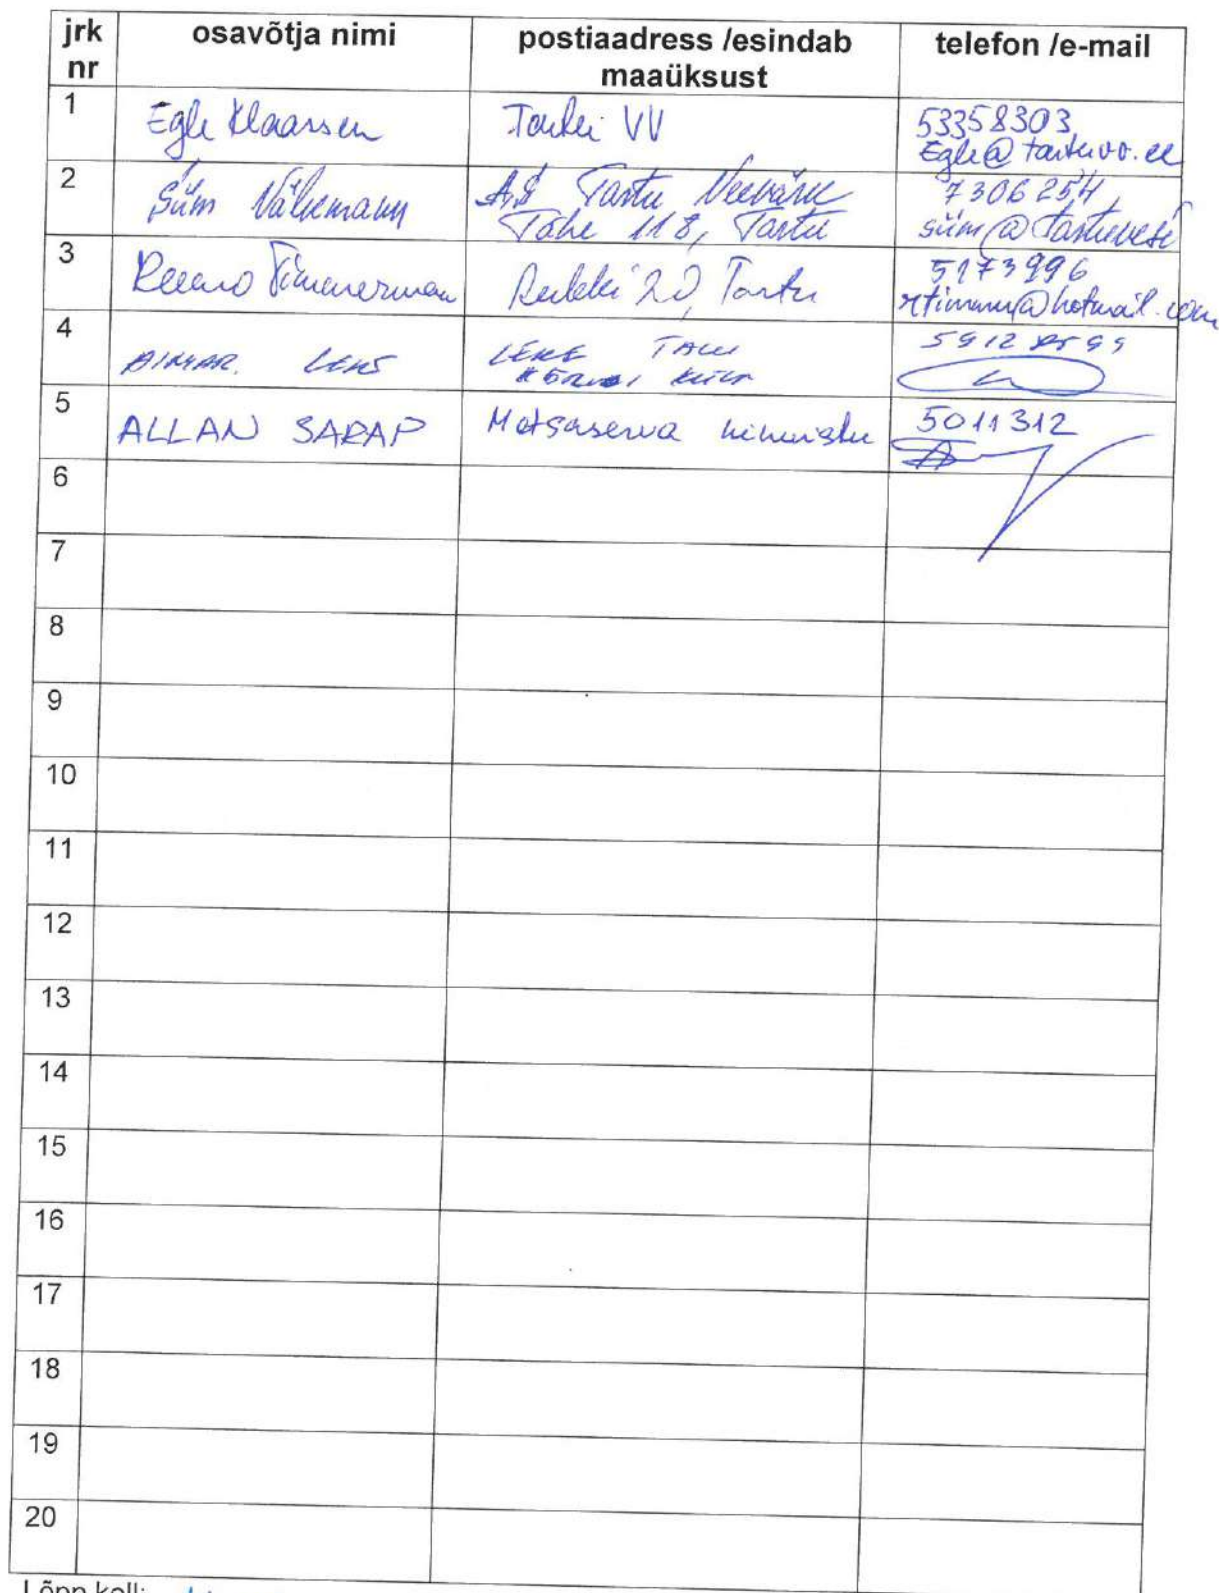 jrk nr osavõtja nimi postiaadress /esindab maaüksust telefon /e-mail
1 Egle Klaassen Tartu VV 53358303
Egle@tartuvv.ee
2 Siim Välkmann AS Tartu Veevärk 7306254,
Tähe 118, Tartu siim@tartuvesi
3 Timmerman 20, Tartu 5173996
rtimmm@hotmail.com
4 AIMAR. LEKE TALU
5 ALLAN SARAP Metsaserva kinnistu 5011312
6
7
8
9
10
11
12
13
14
15
16
17
18
19
20
Lõpp kell: